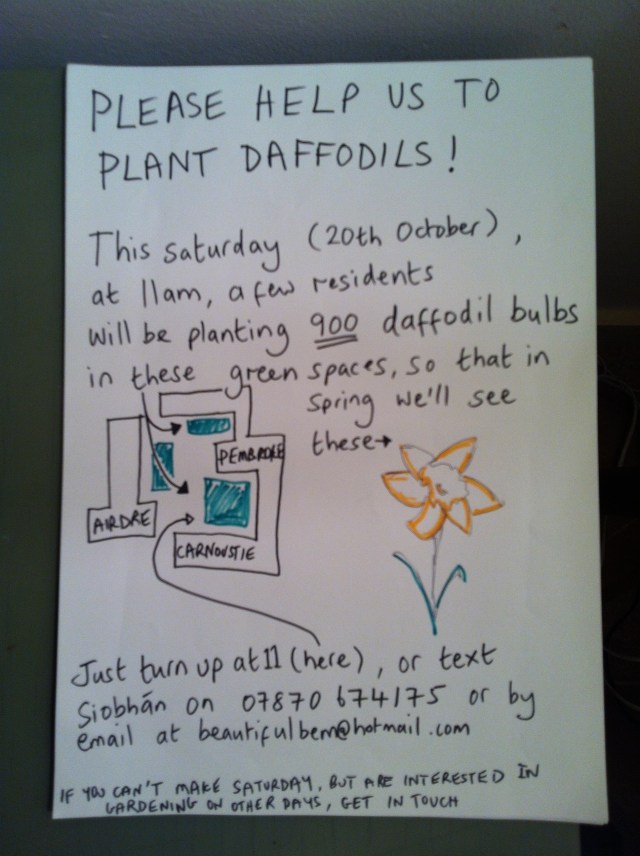 PLEASE HELP US TO
PLANT DAFFODILS!
This saturday (20th October),
at 11am, a few residents
will be planting 900 daffodil bulbs
in these green spaces, so that in
Spring we'll see
these→
PEMBROKE
AIRDRE
CARNOUSTIE
Just turn up at 11 (here), or text
Siobhán on 07870 674175 or by
email at beautifulbem@hotmail.com
IF YOU CAN'T MAKE SATURDAY, BUT ARE INTERESTED IN
GARDENING ON OTHER DAYS, GET IN TOUCH